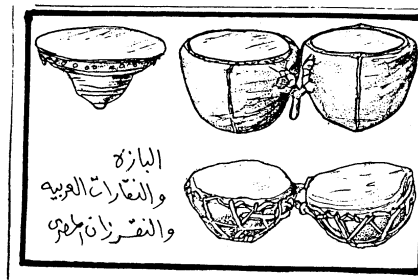 البازه
والنقارات العربيه
والنقرزان المصرى